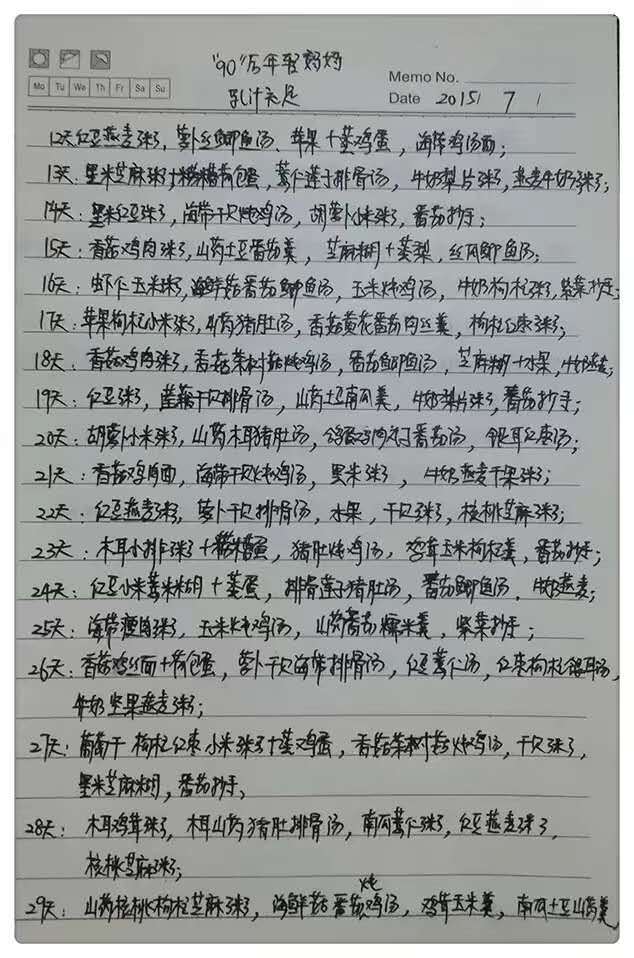 "90"后年轻妈妈
Memo No.
Mo Tu We Th Fr Sa Su
乳汁充足
Date 2015 7 1
12天红豆燕麦粥，萝卜丝鲫鱼汤、苹果+蒸鸡蛋，海带鸡汤面；
13天：黑米芝麻粥+荷包蛋，薏仁莲子排骨汤，牛奶梨片粥，燕麦牛奶粥；
14天：黑米红豆粥，海带干贝炖鸡汤，胡萝卜小米粥，番茄抄手；
15天：香菇鸡肉粥，山药土豆番茄羹，芝麻糊+蒸梨，丝瓜鲫鱼汤；
16天：虾仁玉米粥，海鲜菇番茄鲫鱼汤，玉米炖鸡汤，牛奶枸杞粥，紫菜抄手；
17天：苹果枸杞小米粥，山药猪肚汤，香菇黄花番茄肉丝羹，枸杞红枣粥；
18天：香菇鸡肉粥，香菇茶树菇炖鸡汤，番茄鲫鱼汤，芝麻糊+水果，牛奶燕麦；
19天：红豆粥，莲藕干贝排骨汤，山药土豆南瓜羹，牛奶梨片粥，番茄抄手；
20天：胡萝卜小米粥，山药木耳猪肚汤，番茄汤，银耳红枣汤；
21天：香菇鸡肉面，海带干贝炖鸡汤，黑米粥，牛奶燕麦干果粥；
22天：红豆燕麦粥，萝卜干贝排骨汤，水果，干贝粥，核桃芝麻粥；
23天：木耳小排粥+蛋，猪肚炖鸡汤，鸡茸玉米枸杞羹，番茄抄手；
24天：红豆小米薏米糊+蒸蛋，排骨莲子猪肚汤，番茄鲫鱼汤，牛奶燕麦；
25天：海带瘦肉粥，玉米炖鸡汤，山药番茄糯米羹，紫菜抄手；
26天：香菇鸡丝面+荷包蛋，萝卜干贝海带排骨汤，红豆薏仁汤，红枣枸杞银耳汤，
牛奶坚果燕麦粥；
27天：葡萄干枸杞红枣小米粥+蒸鸡蛋，香菇茶树菇炖鸡汤，干贝粥，
黑米芝麻糊，番茄抄手，
28天：木耳鸡茸粥，木耳山药猪肚排骨汤，南瓜薏仁粥，红豆燕麦粥，
核桃芝麻粥；
29天：山药核桃枸杞芝麻粥，海鲜菇番茄炖鸡汤，鸡茸玉米羹，南瓜土豆山药羹